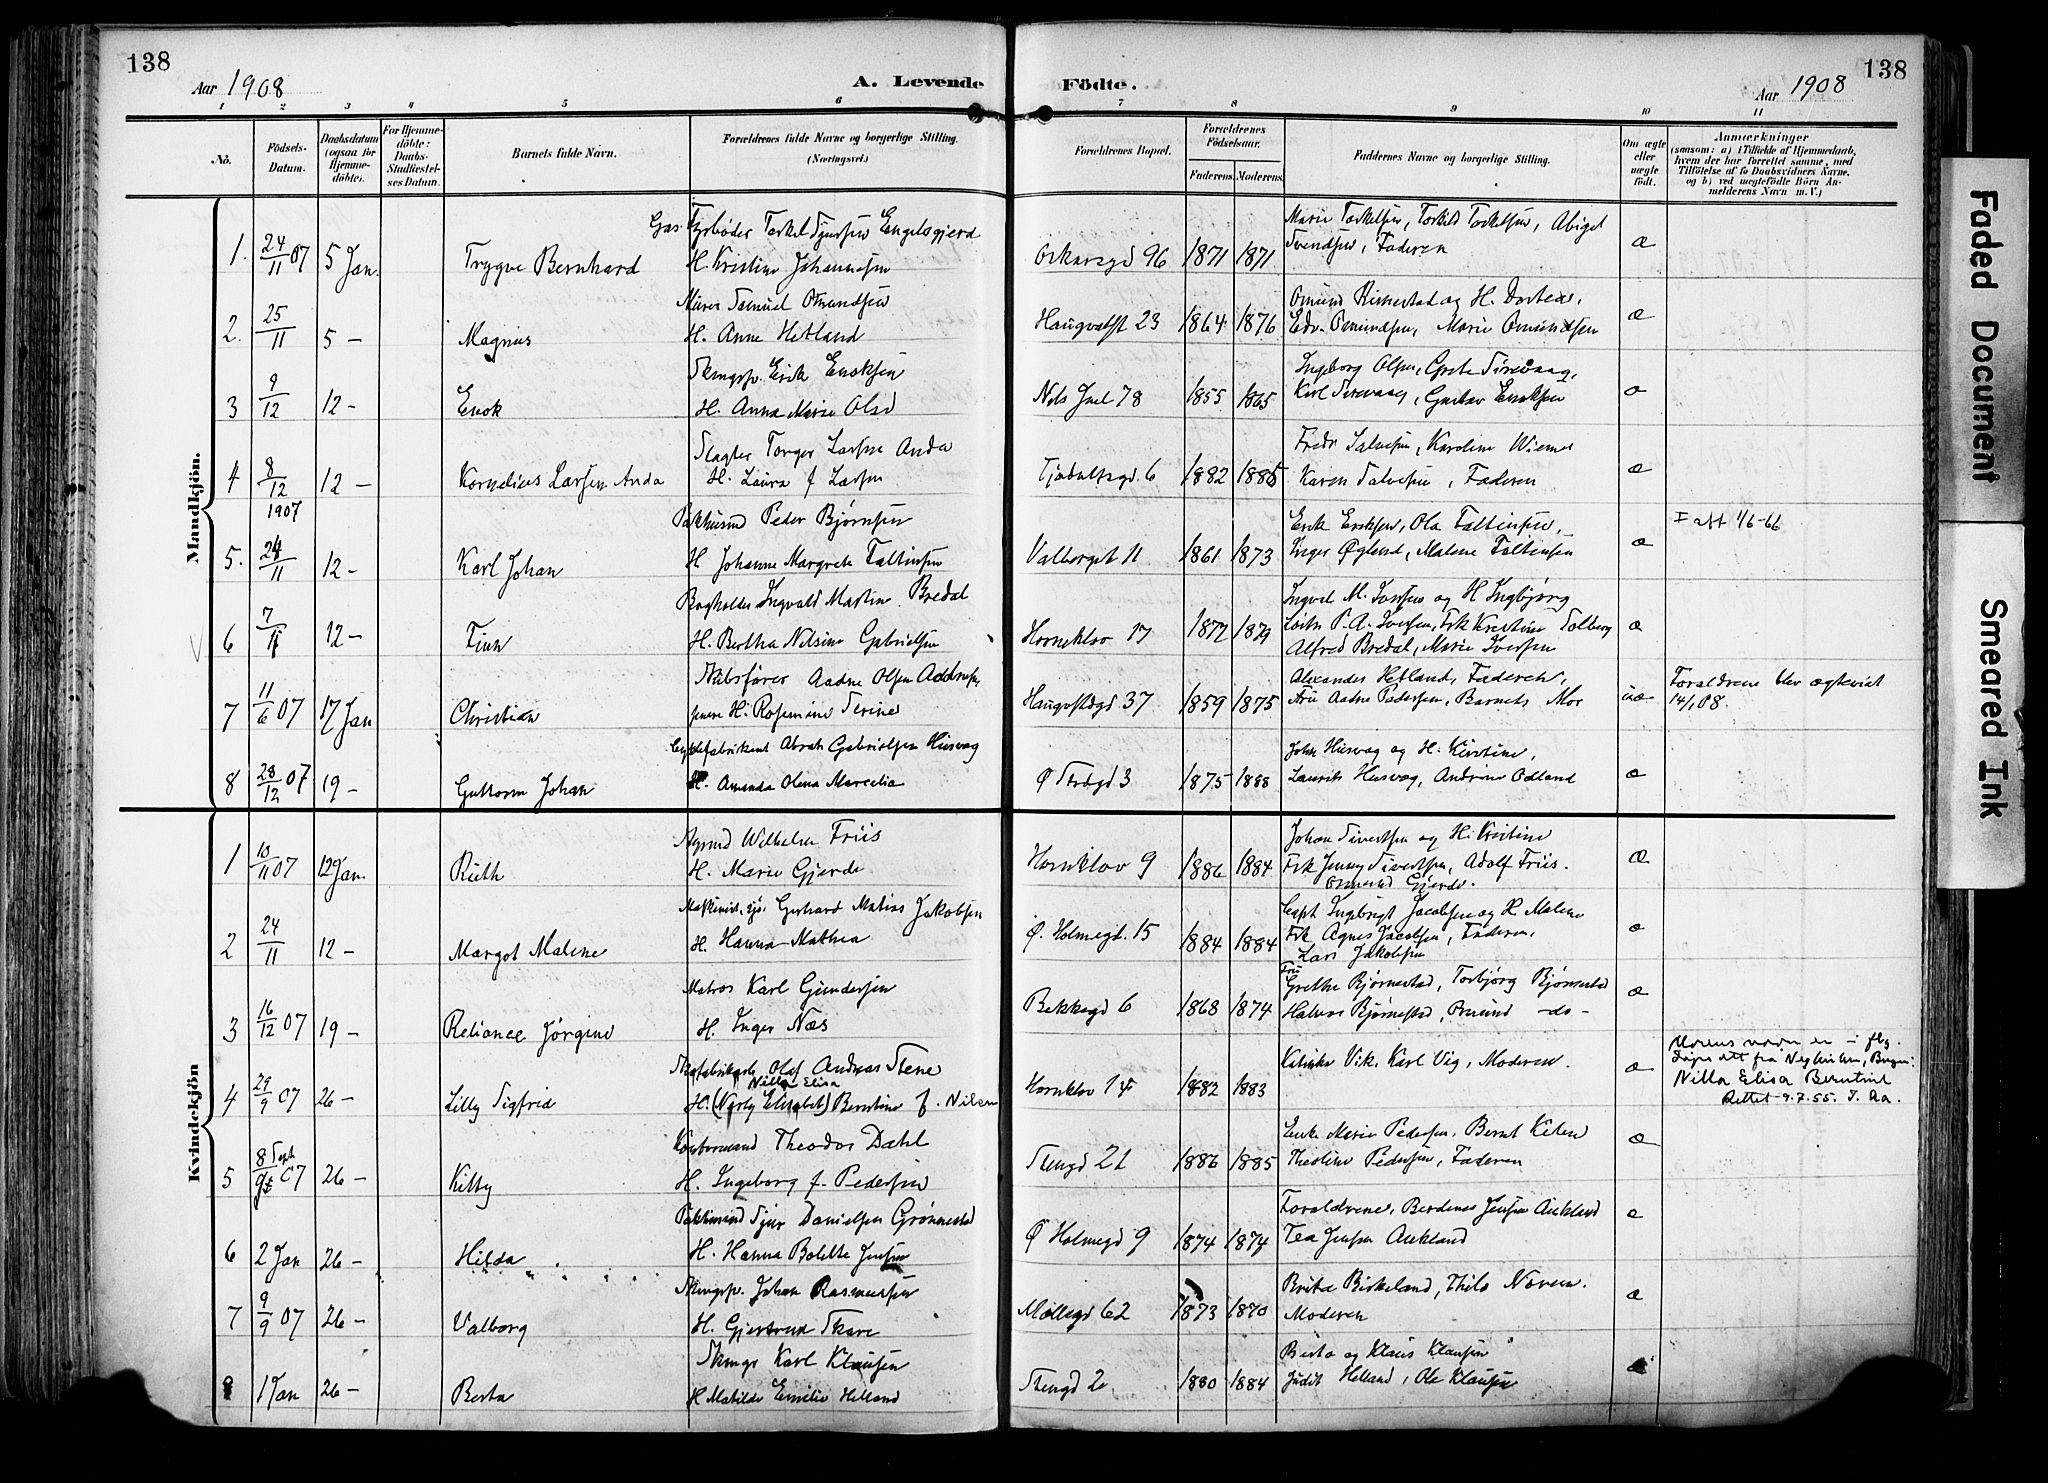 138
Aar 1908
A. Levende
Födte.
Aar 1908
138
1 2 3 4 5 6 7 8 9 10 11
No.
Födsels-Datum.
Daabsdatum (ogsaa for Hjemme-döbte).
For Hjemme-döbte: Daabs-Stadfæstel-ses Datum.
Barnets fulde Navn.
Forældrenes fulde Navne og borgerlige Stilling. (Næringsvei.)
Forældrenes Bopæl.
Forældrenes Födselsaar.
Faderens. Moderens.
Faddernes Navne og borgerlige Stilling.
Om ægte eller uægte födt.
Anmærkninger
(saasom: a) i Tilfælde af Hjemmedaab, hvem der har forrettet samme, med Tilföielse af to Daabsvidners Navne, og b) ved uægtefödte Börn An-melderens Navn m. V.)
Mandkjön.
Marie Torkelsen, Torkild Torkelsen, Abigel
1. 24/11 07 5 Jan. Trygve Bernhard H. Kristine Johannesen Oskarsgd 96 1871 1871 Svendsen, Faderen æ
Murer Samuel Omundsen Omund Rimestad og H. Dortea,
2. 25/11 5 - Magnus H. Anne Hetland Haugvaldst 23 1864 1876 Edv. Omundsen, Marie Omundsen æ
Erik Enoksen Ingeborg Olsen, Grete Sirevaag,
3 9/12 12 - Enok H. Anna Marie Olsd Nels Juel 78 1855 1865 Karl Sirevaag, Gustav Enoksen
Slagter Torger Larsen Anda Fredr Salvesen, Karoline
4 8/12 12 - Kornelius Larsen Anda H. Laura f Larsen 6 1882 1885 Karen Salvesen, Faderen æ
1907 Peder Bjørnsen Erik Eriksen, Ola Faltinsen,
5. 24/11 12 - Karl Johan H Johanne Margrete Faltinsen Valbergst 11 1861 1873 Inger Øglend, Malene Faltinsen æ
I att 1/6-66
Bogholder Ingvald Martin Bredal
6 7/11 12 - Finn H. Bertha Nilsine Gabrielsen Horneklov 17 1877 1879 P. A. Iversen, Frk Kristine Solberg æ
Alfred Bredal, Marie Iversen
Aadne Olsen Alexander Hetland, Faderen,
7 11/6 07 17 Jan Christian H. Rosemine Serine 37 1859 1875 Aadne Pedersen, Barnets Mor uæ
Forældrene blev ægteviet 14/1 08.
Abrah Gabrielsen Husvæg John Husvæg og H. Kirstine,
8 28/12 07 19 - Guttorm Johan H. Amanda Olena Marcelia Ø 3 1875 1888 Laurits Husvæg, Andrine Odland æ
Kvindekjön
Wilhelm Friis Johan Sivertsen og H. Kristine
1 10/11 07 12 Jan. Ruth H. Marie Gjerde Hornklov 9 1886 1884 Frk Jenny Sivertsen, Adolf Friis. æ
Gjerde.
Gerhard Matias Jakobsen Capt Ingbrigt Jacobsen og H Malene
2 24/11 12 - Margot Malene H. Hanna Mathea Ø. Holmegd. 15 1884 1884 Frk Agnes Jacobsen, Faderen,
Lars Jakobsen
Matros Karl Gundersen Fru Grethe Bjørnestad, Torbjørg Bjørnestad
3 16/12 07 19 - Reliance Jørgine H. Inger Næs Bekkegd 6 1868 1874 Halvor Bjørnestad, Omund -do- æ
Olaf Andreas Stene Karl Vig, Moderen.
Nilla Elisa
4 29/9 07 26 - Lilly Sigfrid H. (Nærly Elisabet) Berntine f. Nilsen Hornklov 14 1882 1883 æ
Morens navn er i flg.
Nilla Elisa Berntine
Rettet 9.7.55.
Theodor Dahl Marie Pedersen, Bernt
5 8 Sept 07 26 - Kitty H. Ingeborg f. Pedersen Stengd 21 1886 1885 Pedersen, Faderen æ
Sjur Danielsen Grønnestad Forældrene, Jensen Aukland
6 2 Jan 26 - Hilda H. Hanna Bolette Jensen Ø Holmegd 9 1874 1874 Tea Jensen Aukland æ
Johan Rasmussen Brita Birkeland,
7 9/9 07 26 - Valborg H. Gjertrud Skare Møllegd 62 1873 1870 Moderen æ
Karl Klausen Berta og Klaus Klausen
8 1 Jan 26 - Berta H Matilde Emilie Helland Stengd 2 1880 1884 Judit Helland, Ole Klausen
Faded Document
Smeared Ink